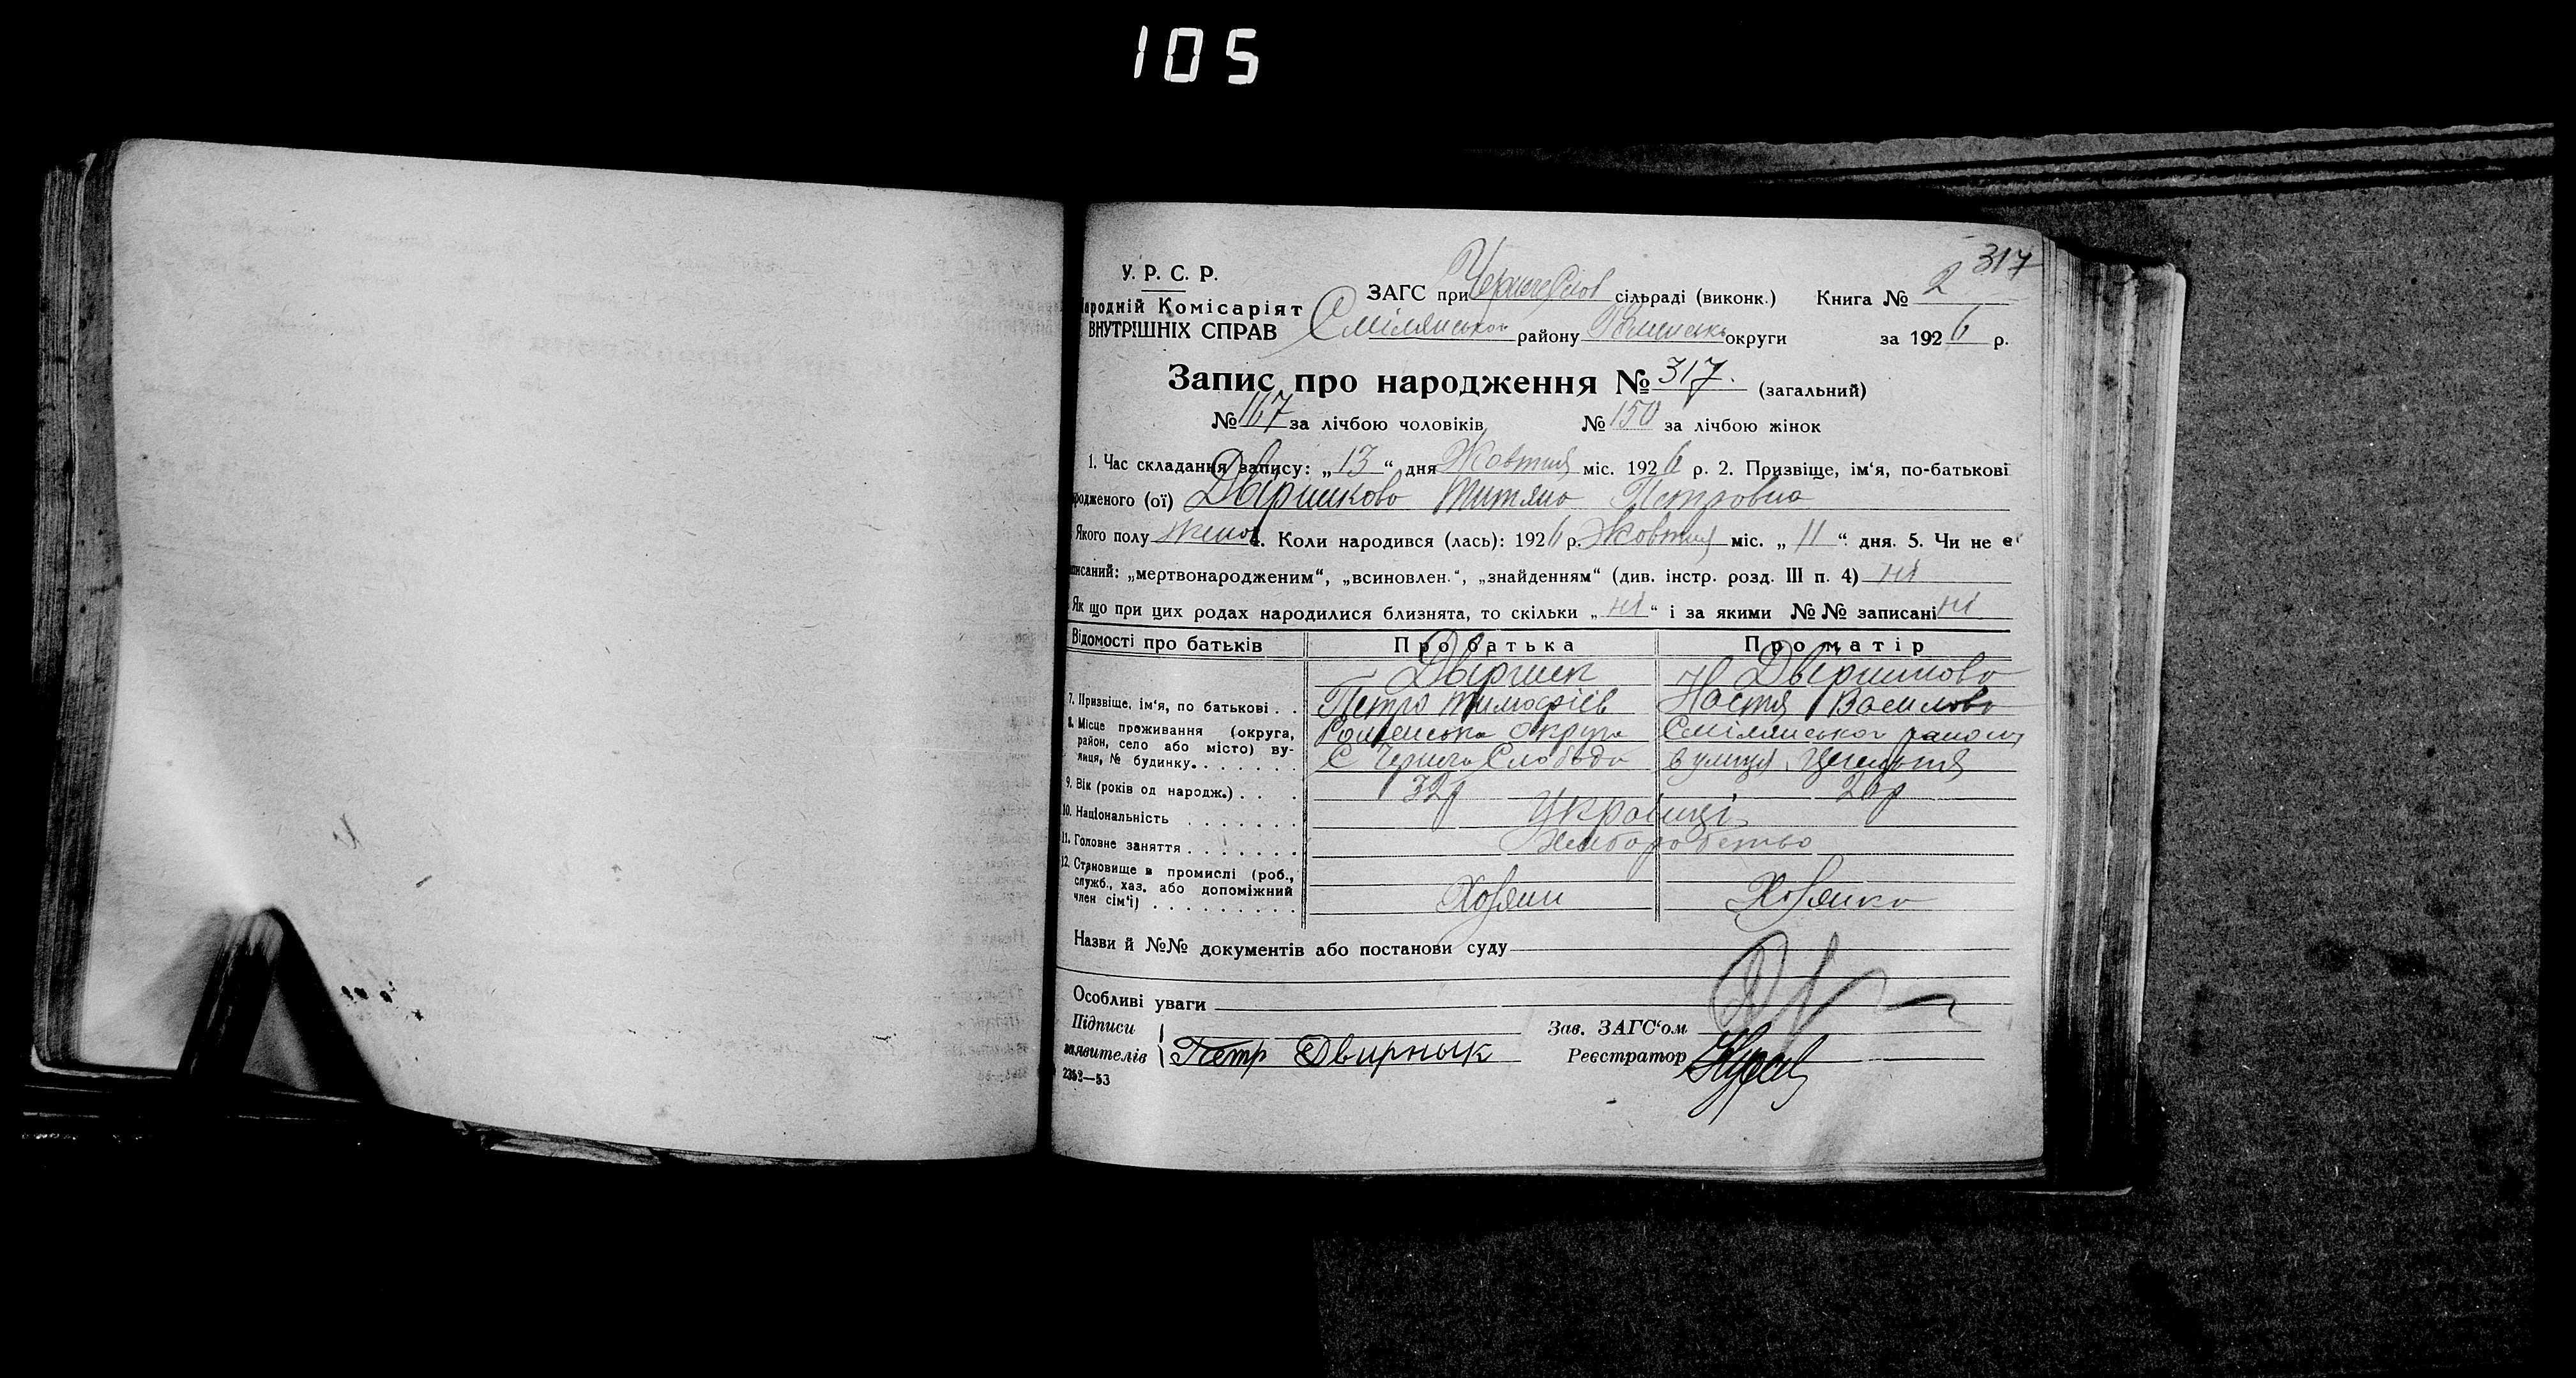 105
317
У. Р. С. Р.
Народній Комісаріят
ВНУТРІШНІХ СПРАВ
ЗАГС при сільраді (виконк.) Книга № 2
Смілянськои району Роменськ округи за 1926 р.
Запис про народження № 317. (загальний)
№ 167 за лічбою чоловіків № 150 за лічбою жінок
1. Час складання запису: „ 13 “ дня Жовтня міс. 1926 р. 2. Призвіще, ім‘я, по-батькові
родженого (ої) Двірникова Титяна Петровна
Якого полу жено 4. Коли народився (лась): 1926 р. Жовтня міс. „ 11 “ дня. 5. Чи не є
писаний: „мертвонародженим“, „всиновлен.“, „знайденням“ (див. інстр. розд. III п. 4) ні
Як що при цих родах народилися близнята, то скільки „ ні “ і за якими №№ записані ні
Відомості про батьків Про батька Про матір
Двірник Двірникова
7. Призвіще, ім‘я, по батькові . . Петро Тимофіїв Настя Василова
8. Місце проживання (округа, район, село або місто) вулиця, № будинку. Роменська округа Смілянськои району
С Чернеча Слобода вулиця
9. Вік (років од народж.) . . . 32р
10. Національність . . . . . . . Українці
11. Головне заняття . . . . . . . Хліборобство
12. Становище в промислі (роб.,
служб., хаз. або допоміжний
член сім‘ї) . . . . . . . . . Хозяин Хозяика
Назви й №№ документів або постанови суду
Особливі уваги
Підписи
заявителів Петр Двирнык
Зав. ЗАГС‘ом
Реєстратор
2352—53